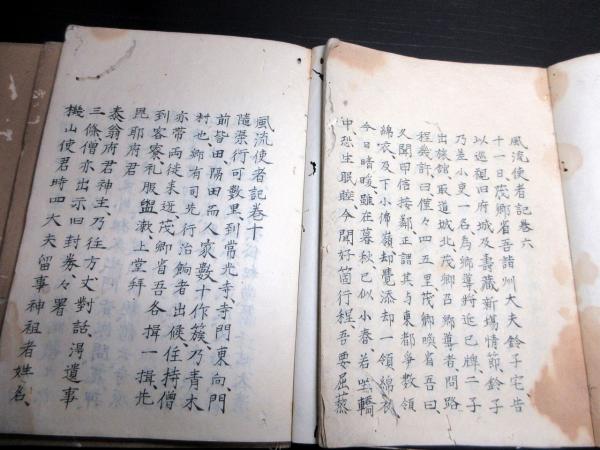 風流使者記巻六
十一日茂卿省吾諸州大夫鈴子宅告
以巡視旧府城及壽藏新場情節鈴子
乃差小吏一名為郷導將近巳牌二子
出旅館取道城北茂卿召郷導者問路
程幾許曰僅々四五里茂卿喚省吾曰
又聞甲信接鄰正謂其与東都爭数領
綿衣及下小佛嶺却覺添却一領綿衣
今日晴暖雖在暮秋已似小春若坐轎
中恐生眠睡今聞好箇行程吾要屈蔡
風流使者記巻十
隨渠行可数里到常光寺寺門東向門
前皆田隔田而人家数十作簇乃青木
村也郷有司先行治餉者出候住持僧
亦帯両徒来迎茂卿省吾各揖一揖先
到客寮礼服盥漱上堂拝
毘耶府君
泰翁府君神主乃往方丈對話淂遺事
三條僧亦出示旧封券々署
機山使君時四大夫留事神祖者姓名